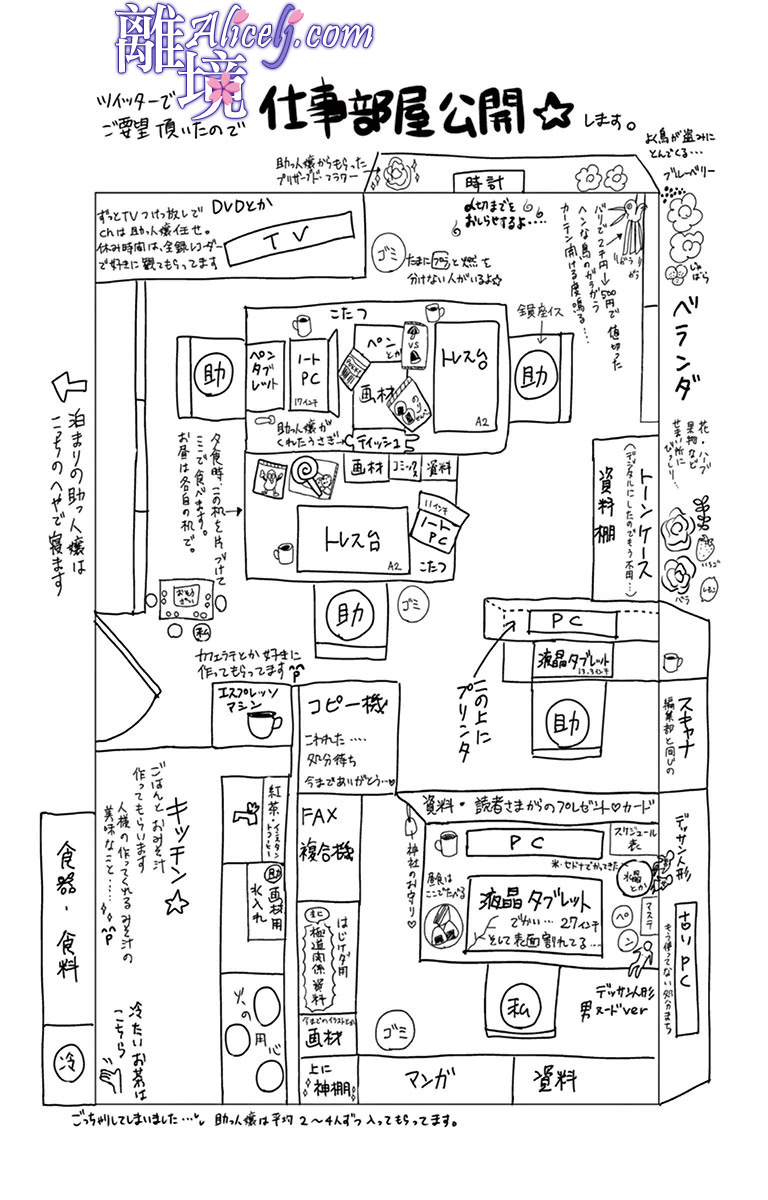 離境
Alicelj.com
ツイッターで
ご要望頂いたので
仕事部屋公開☆します。
助っ人嬢からもらった
プリザーブド・フラワー
時計
〆切までを
おしらせするよ…
よく鳥が盗みに
とんでくる…
ブルーベリー
ずっとTVつけっ放しで
chは助っ人嬢任せ。
休み時間は、全録レコーダー
で好きに観てもらってます
DVDとか
TV
ゴミ
たまにプラと燃を
分けない人がいるよ☆
バリで2千円→500円で値切った
ヘンな鳥のガラガラ
カーテン開ける度鳴る…
がらがら
ベランダ
花・ハーブ
果物など
せまい所に
びっしり…
いちご
バラ
こたつ
助
ペンタブレット
ノートPC
17インチ
ペンとか
画材
VS
トレス台
A2
座イス
助
助っ人嬢が
くれたうさぎ
ティッシュ
画材
コミックス
資料
トレス台
A2
11インチ
ノートPC
こたつ
助
ゴミ
夕食時、この机を片づけて
ここで食べます。
お昼は各自の机で。
私
泊まりの助っ人嬢は
こっちのへやで寝ます
トーンケース
(デジタルにしたのでもう不用…)
資料棚
PC
液晶タブレット
13.3インチ
この上に
プリンタ
助
スキャナ
編集部と同じの
カフェラテとか好きに
作ってもらってます^^
エスプレッソ
マシン
コピー機
こわれた……
処分待ち
今までありがとう…♡
キッチン☆
ごはんとおみそ汁
作ってもらいます
人様の作ってくれるみそ汁の
美味なこと……
食器・食料
冷
冷たいお茶は
こちら
紅茶・インスタントコーヒー
助
画材用
水入れ
火の用心
FAX
複合機
はじけダ用
極道関係資料
今までのイラストとか
画材
上に
神棚
資料・読者さまからのプレゼント♡カード
神社のお守り♡
PC
スケジュール表
米・セドナでかってきた
水晶とか
昼食は
ここでたべる
液晶タブレット
でかい…27インチ
そして表面割れてる…
ペン
マステ
デッサン人形
古いPC
もう使ってない処分まち
私
デッサン人形
男ヌードver
ゴミ
マンガ
資料
ごっちゃりしてしまいました…
助っ人嬢は平均2〜4人ずつ入ってもらってます。